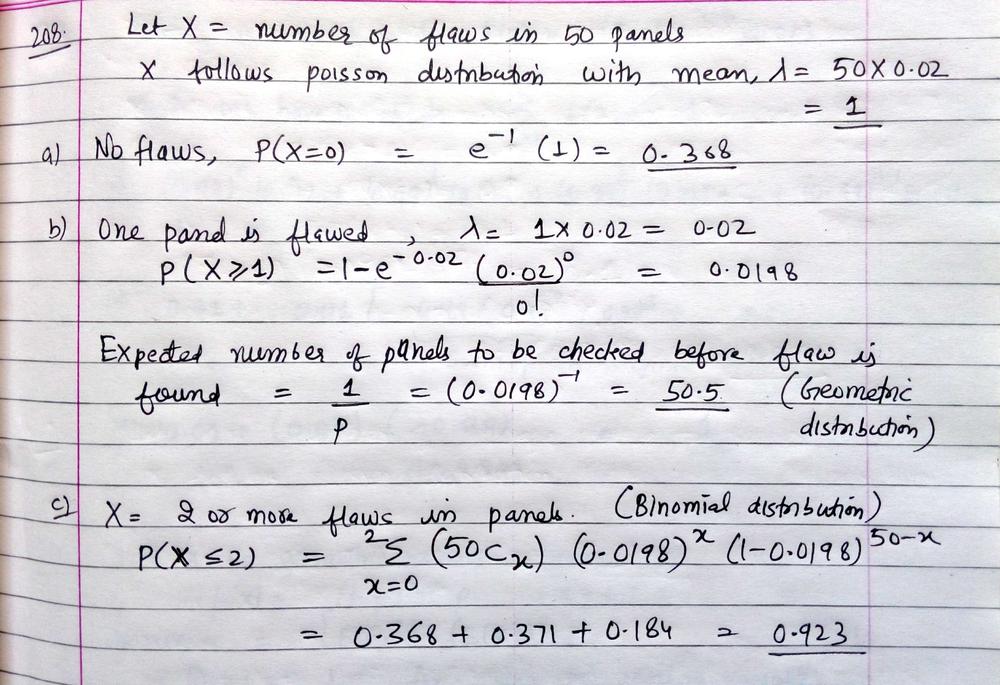 208.
Let X = number of flaws in 50 panels
X follows poisson distribution with mean, λ = 50 X 0.02
= 1
a) No flaws, P(X=0) = e^-1 (1) = 0.368
b) One panel is flawed , λ = 1 X 0.02 = 0.02
P(X ≥ 1) = 1 - e^-0.02 (0.02)^0 / 0! = 0.0198
Expected number of panels to be checked before flaw is
found = 1/p = (0.0198)^-1 = 50.5 (Geometric
distribution)
c) X = 2 or more flaws in panels. (Binomial distribution)
P(X ≤ 2) = 2 Σ x=0 (50Cx) (0.0198)^x (1-0.0198)^50-x
= 0.368 + 0.371 + 0.184 = 0.923